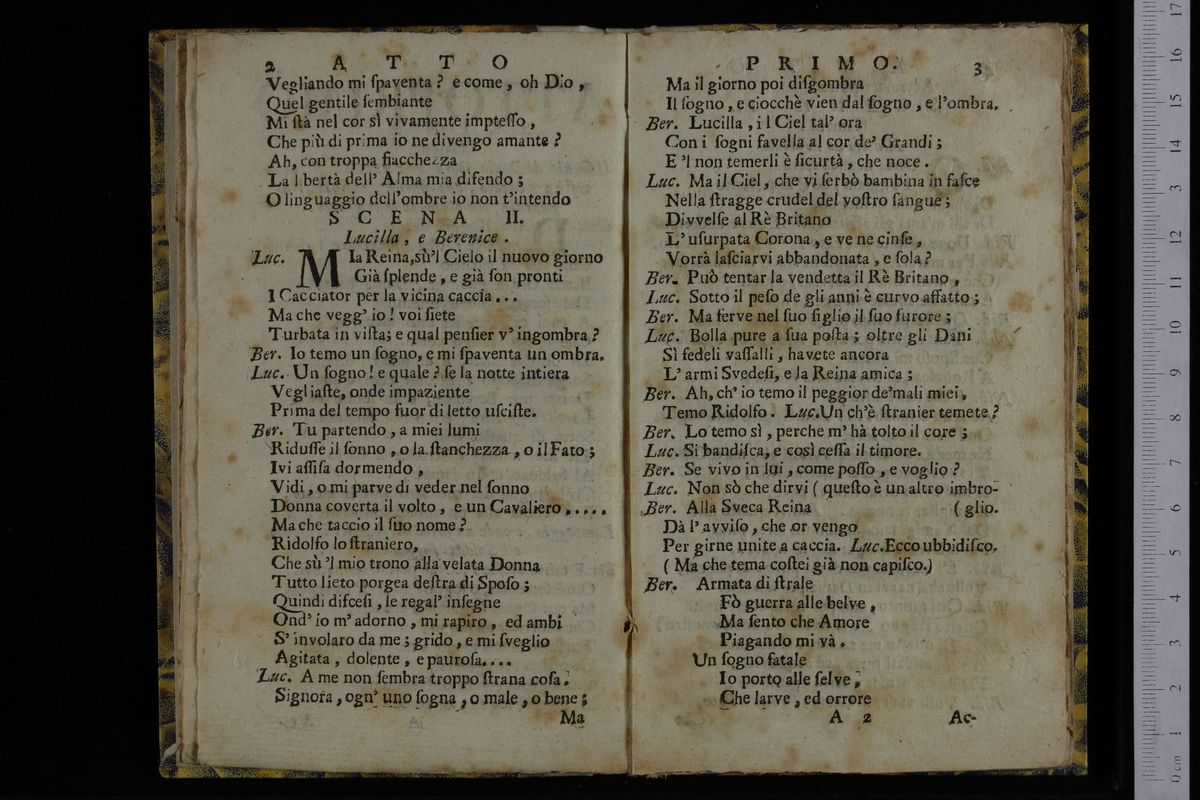 2 A T T O
Vegliando mi ſpaventa ? e come , oh Dio ,
Quel gentile ſembiante
Mi ſtà nel cor sì vivamente impteſſo ,
Che più di prima io ne divengo amante ?
Ah, con troppa fiacchezza
La libertà dell' Alma mia difendo ;
O linguaggio dell'ombre io non t'intendo
S C E N A II.
Lucilla , e Berenice .
Luc. MIa Reina,sù'l Cielo il nuovo giorno
Già ſplende , e già ſon pronti
I Cacciator per la vicina caccia . . .
Ma che vegg' io ! voi ſiete
Turbata in viſta; e qual penſier v' ingombra ?
Ber. Io temo un ſogno, e mi ſpaventa un ombra.
Luc. Un ſogno ! e quale ? ſe la notte intiera
Vegliaſte, onde impaziente
Prima del tempo fuor di letto uſciſte.
Ber. Tu partendo , a miei lumi
Riduſſe il ſonno , o la ſtanchezza , o il Fato ;
Ivi aſſiſa dormendo ,
Vidi , o mi parve di veder nel ſonno
Donna coverta il volto , e un Cavaliero , . . . .
Ma che taccio il ſuo nome ?
Ridolfo lo ſtraniero,
Che sù 'l mio trono alla velata Donna
Tutto lieto porgea deſtra di Spoſo ;
Quindi diſceſi , le regal' inſegne
Ond' io m' adorno , mi rapiro , ed ambi
S' involaro da me ; grido, e mi ſveglio
Agitata , dolente , e pauroſa. . . .
Luc. A me non ſembra troppo ſtrana coſa.
Signora , ogn' uno ſogna , o male , o bene ;
Ma
P R I M O. 3
Ma il giorno poi diſgombra
Il ſogno , e ciocchè vien dal ſogno , e l'ombra.
Ber. Lucilla , i l Ciel tal' ora
Con i ſogni favella al cor de' Grandi ;
E 'l non temerli è ſicurtà , che noce .
Luc. Ma il Ciel , che vi ſerbò bambina in faſce
Nella ſtragge crudel del voſtro ſangue ;
Divvelſe al Rè Britano
L' uſurpata Corona , e ve ne cinſe ,
Vorrà laſciarvi abbandonata , e ſola ?
Ber. Può tentar la vendetta il Rè Britano ,
Luc. Sotto il peſo de gli anni è curvo affatto ;
Ber. Ma ferve nel ſuo figlio il ſuo furore ;
Luc. Bolla pure a ſua poſta ; oltre gli Dani
Sì fedeli vaſſalli , havete ancora
L' armi Svedeſi, e la Reina amica ;
Ber. Ah, ch' io temo il peggior de'mali miei ,
Temo Ridolfo . Luc.Un ch'è ſtranier temete ?
Ber. Lo temo sì , perche m' hà tolto il core ;
Luc. Si bandiſca, e così ceſſa il timore.
Ber. Se vivo in lui , come poſſo , e voglio ?
Luc. Non sò che dirvi ( queſto è un altro imbro-
Ber. Alla Sveca Reina ( glio.
Dà l' avviſo , che or vengo
Per girne unite a caccia. Luc.Ecco ubbidiſco.
( Ma che tema coſtei già non capiſco.)
Ber. Armata di ſtrale
Fò guerra alle belve ,
Ma ſento che Amore
Piagando mi và .
Un ſogno fatale
Io porto alle ſelve ,
Che larve , ed orrore
A 2 Ac-
0 cm 1 2 3 4 5 6 7 8 9 10 11 12 13 14 15 16 17